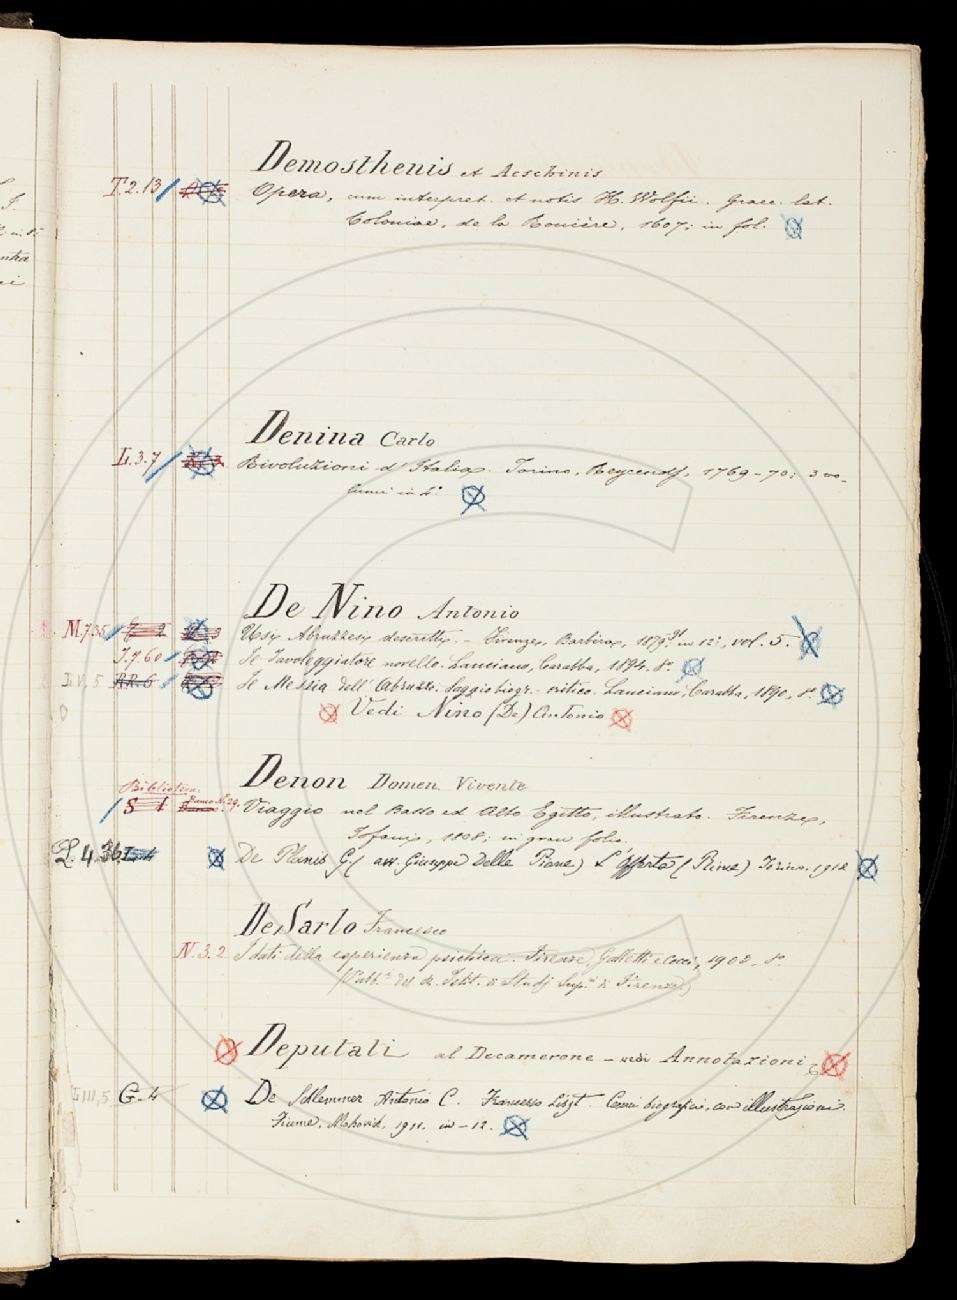 Demosthenis et Aeschinis
T.2.13 Opera, cum interpret. et notis H. Wolfii. Graec. lat.
Coloniae, de la Rouière, 1607; in fol.
Denina Carlo
L.3.7 Rivoluzioni d'Italia. Torino, Reycends, 1769-70; 3 vo-
lumi in 4°
De Nino Antonio
M.7.35 Usi Abruzzesi descritti. - Firenze, Barbèra, 1879 in 12°, vol. 5.
I.7.60 Il Favoleggiatore novello. Lanciano, Carabba, 1894. 8°.
L.V,5 RR.6 Il Messia dell'Abruzzo. Saggio biogr.-critico. Lanciano, Carabba, 1890. 8°
Vedi Nino (De) Antonio
Denon Domen. Vivente
Biblioteca
S 1 Viaggio nel Basso ed Alto Egitto, illustrato. Firenze,
Tofani, 1808; in gran folio.
L.4.36 De Planis G. (avv. Giuseppe Delle Piane) L'Offerta (Rime) Torino, 1912
De Sarlo Francesco
N.3.2 I dati della esperienza psichica. Firenze, Galletti e Cocci, 1903, 8°.
(Pubb. del R. Istit. di Studj Sup. di Firenze)
Deputati al Decamerone - vedi Annotazioni
L III,5 G-4 De Schlemmer Antonio C. Francesco Liszt. Cenni biografici, con illustrazioni.
Fiume, Mohovich, 1911. in-12.